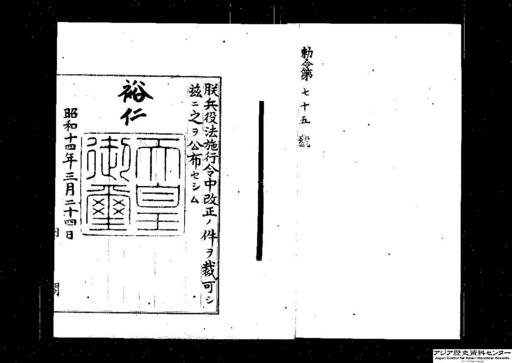 勅令第七十五號
朕兵役法施行令中改正ノ件ヲ裁可シ
茲ニ之ヲ公布セシム
裕仁
天皇
御璽
昭和十四年三月二十四日
内閣
アジア歴史資料センター
Japan Center for Asian Historical Records